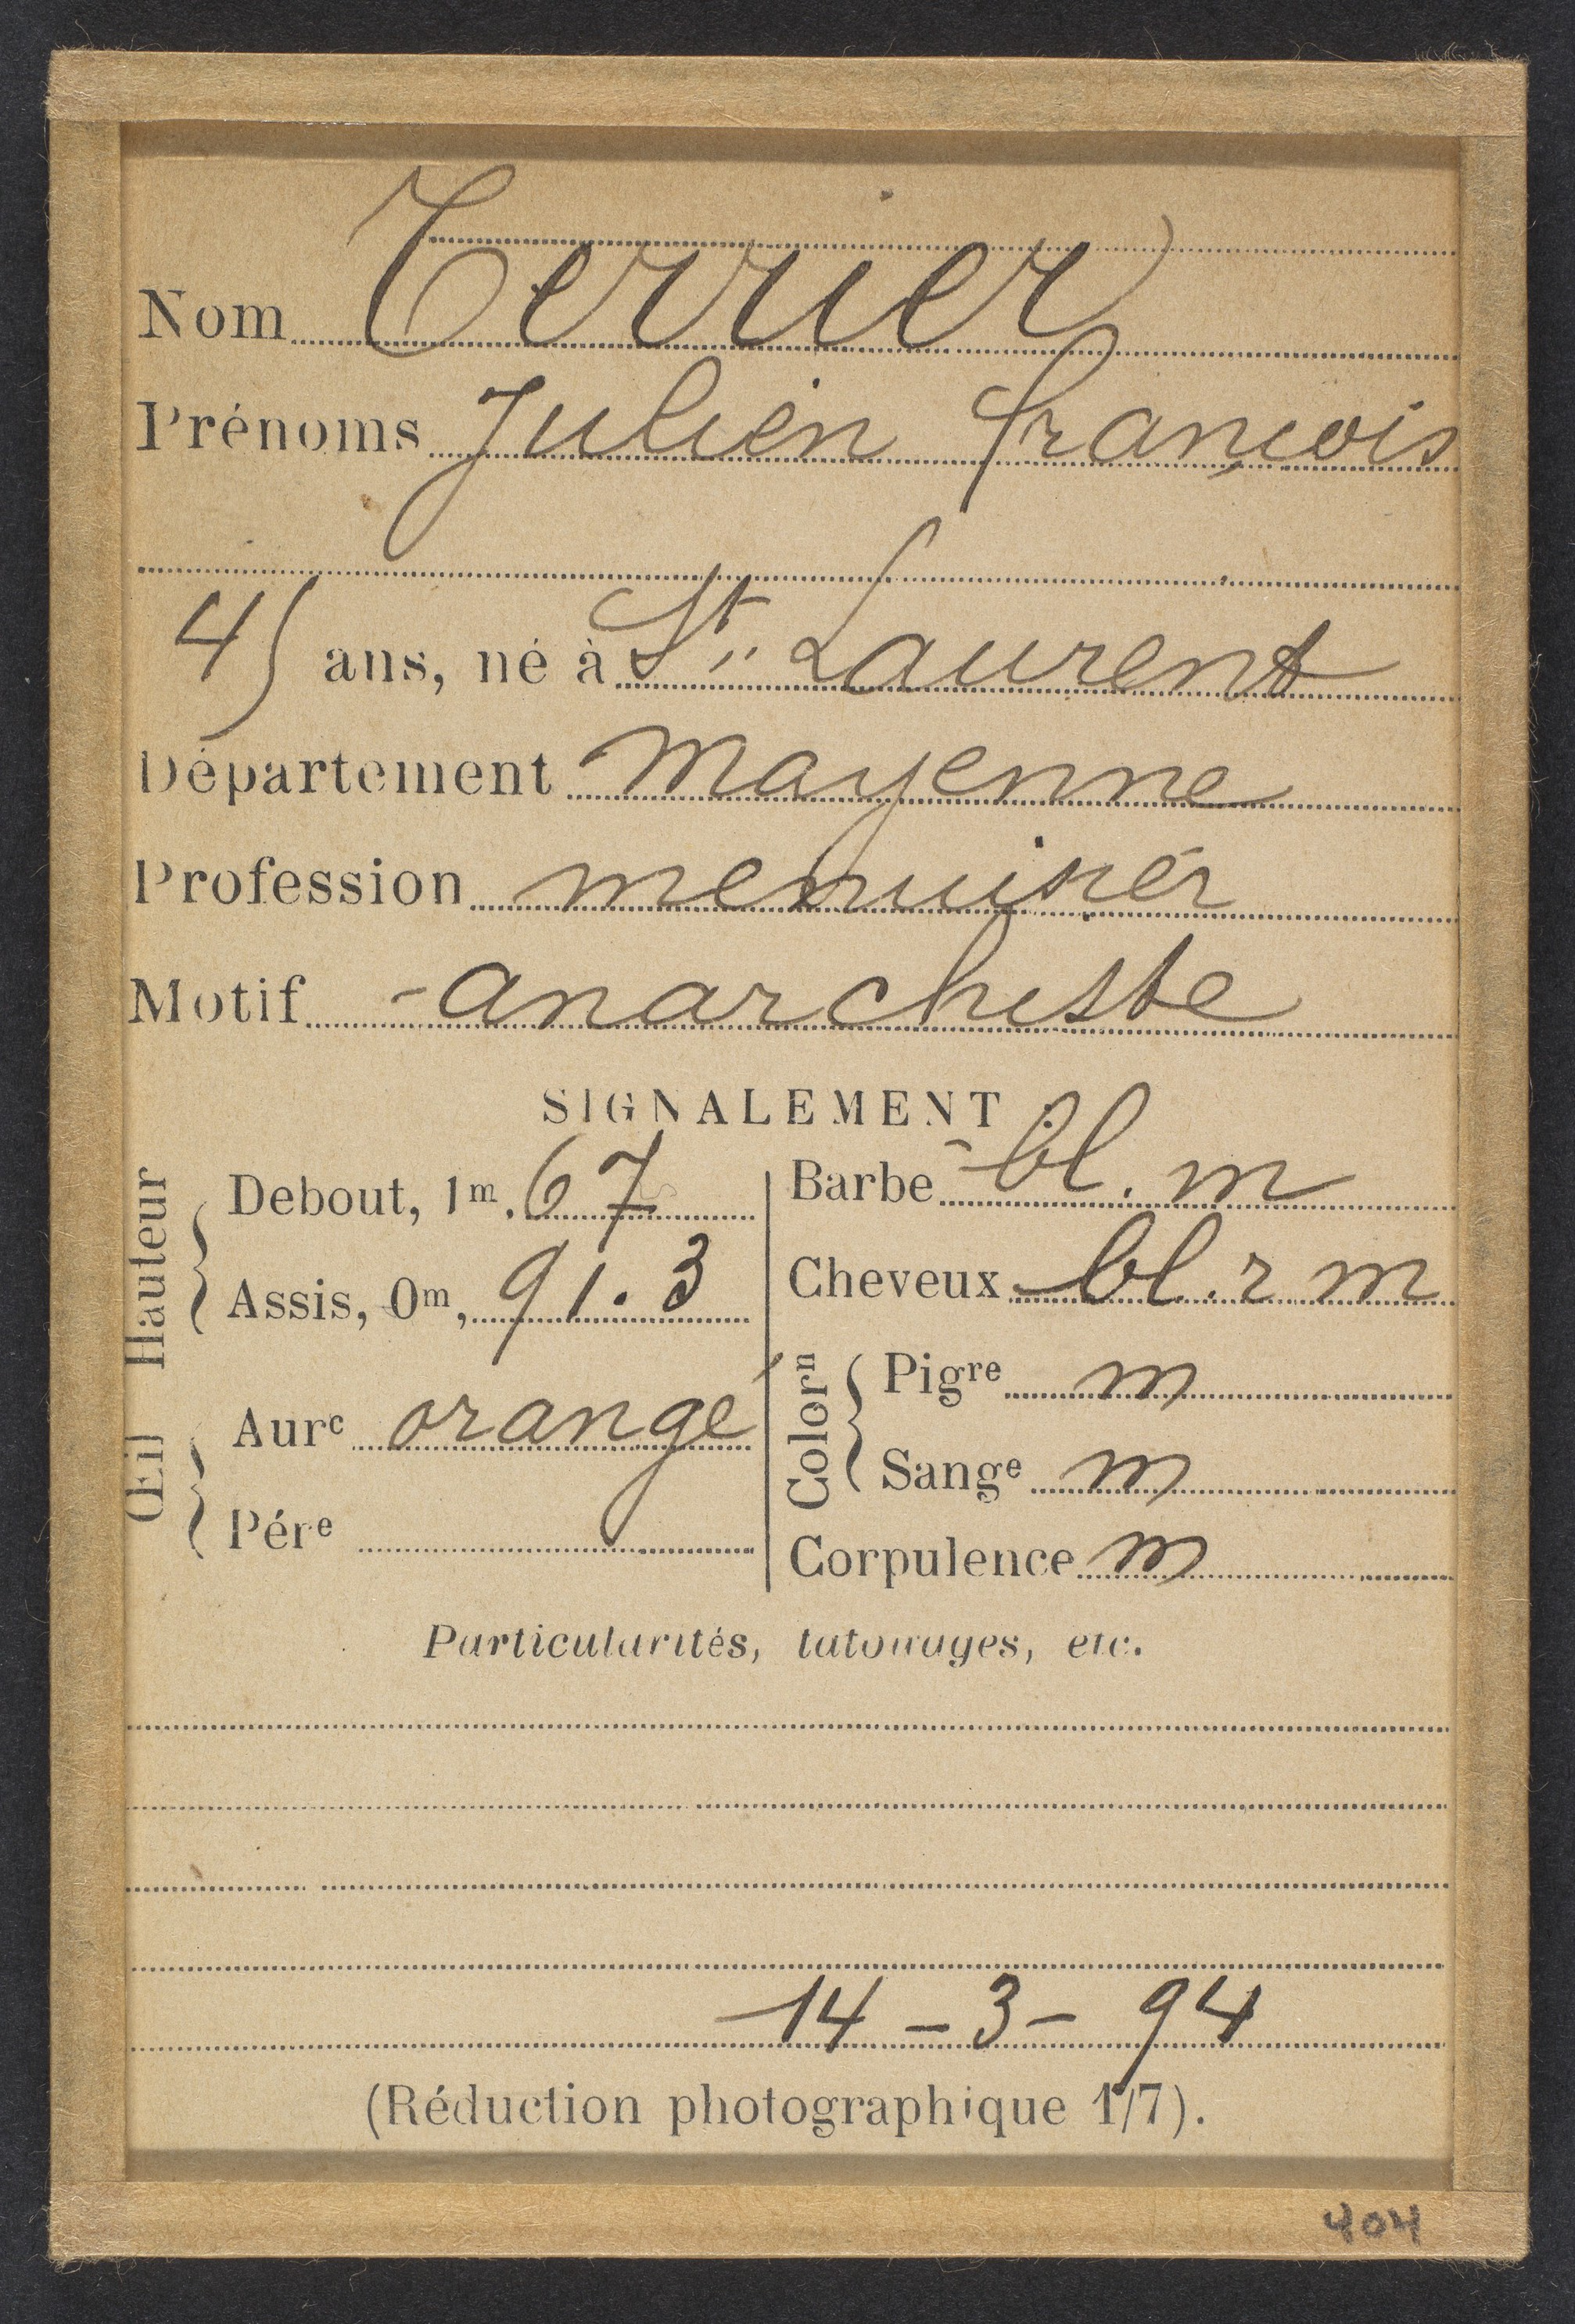 Nom Terrier
Prénoms Julien François
45 ans, né à St. Laurent
Département Mayenne
Profession menuisier
Motif anarchiste
SIGNALEMENT
Hauteur
Debout, 1m, 67
Assis, 0m, 91.3
Œil
Aurᵉ orangé
Pérᵉ
Barbe bl. m
Cheveux bl. r m
Colorⁿ
Pigʳᵉ m
Sangᵉ m
Corpulence m
Particularités, tatouages, etc.
14-3-94
(Réduction photographique 1/7).
404